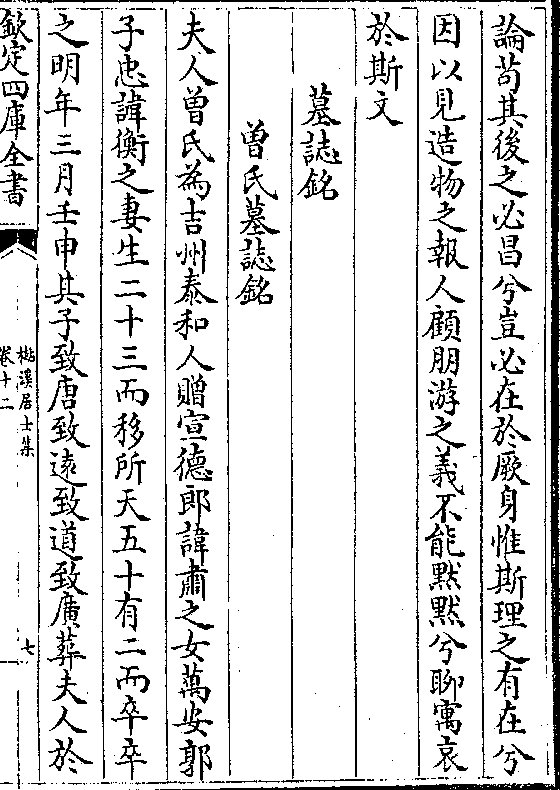 論苟其後之必昌兮豈必在於厥身惟斯理之有在兮
因以見造物之報人顧朋游之義不能黙黙兮聊寓哀
於斯文
墓誌銘
曾氏墓誌銘
夫人曾氏為吉州泰和人贈宣德郎諱肅之女萬安郭
子忠諱衡之妻生二十三而移所天五十有二而卒卒
之明年三月壬申其子致唐致逺致道致廣葬夫人於
欽定四庫全書
桃溪居士集
卷十二
七